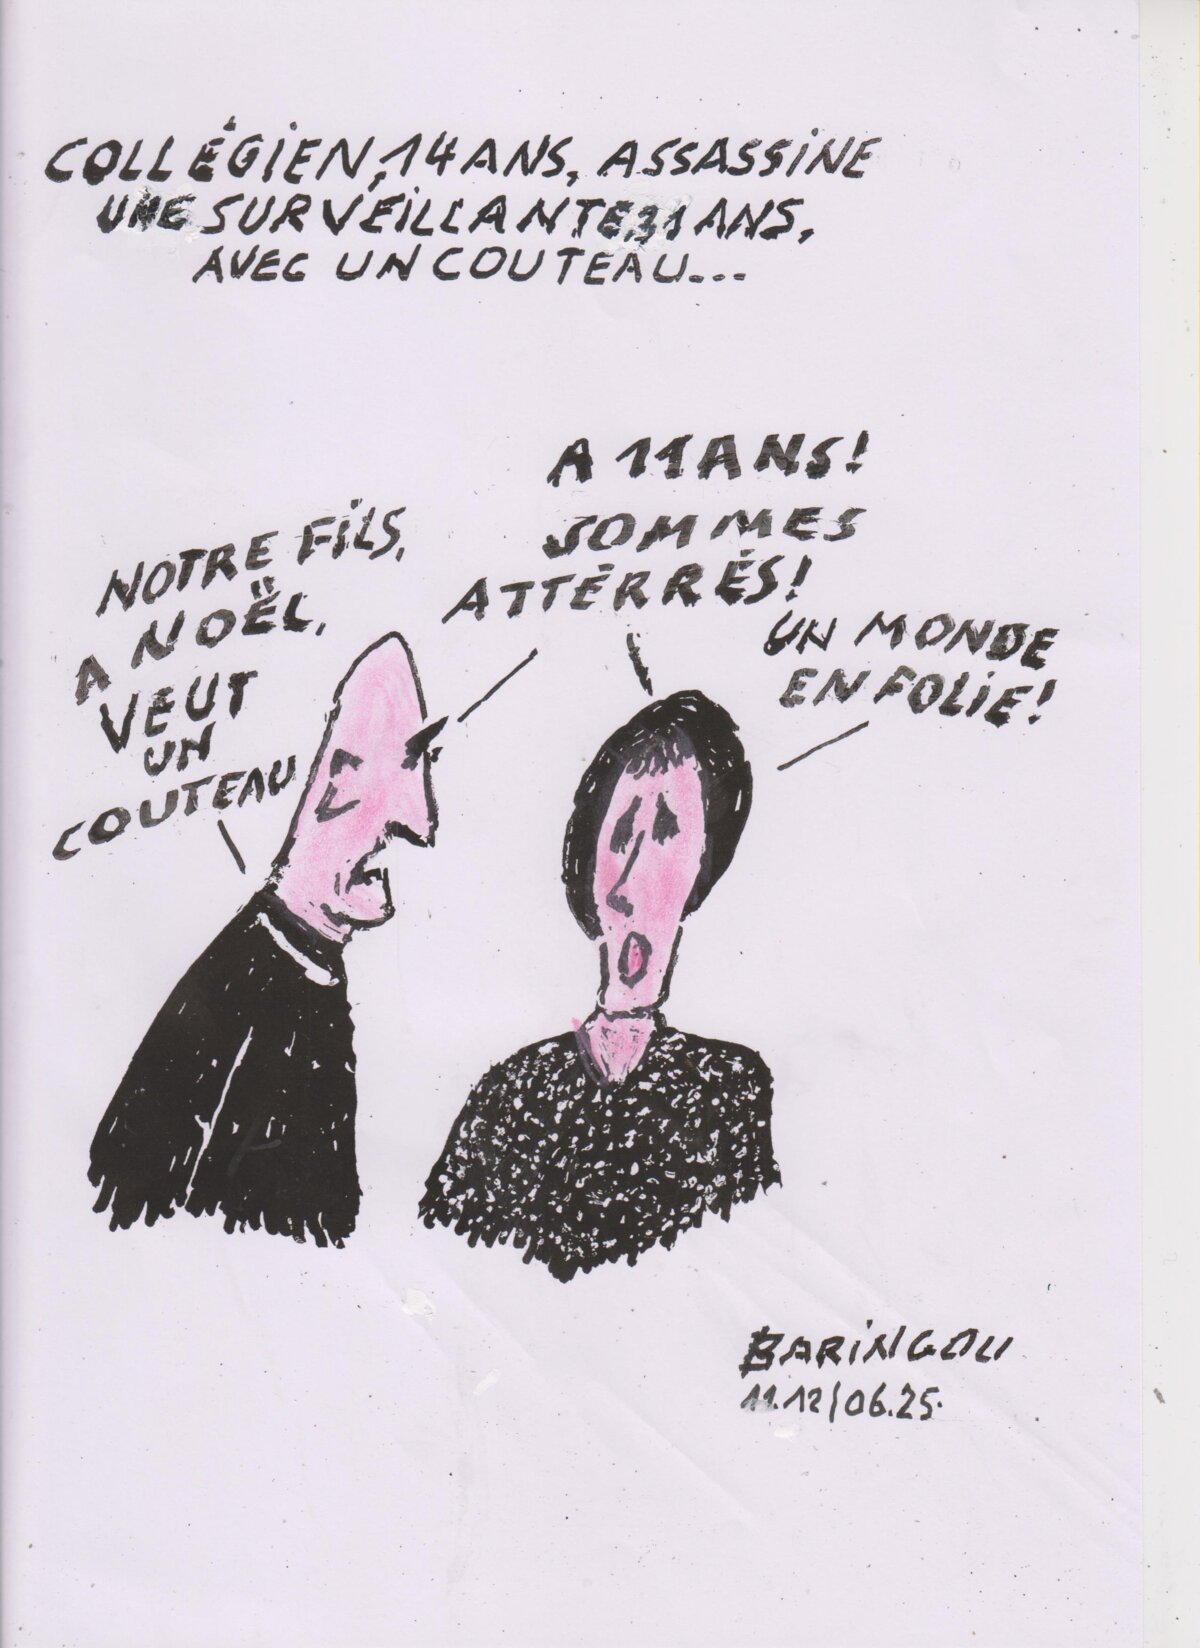 COLLÉGIEN, 14 ANS, ASSASSINE
UNE SURVEILLANTE, 31 ANS,
AVEC UN COUTEAU...
A 11 ANS!
SOMMES
ATTÉRRÉS!
NOTRE FILS,
A NOËL,
VEUT
UN
COUTEAU
UN MONDE
EN FOLIE!
BARINGOU
11.12/06.25.